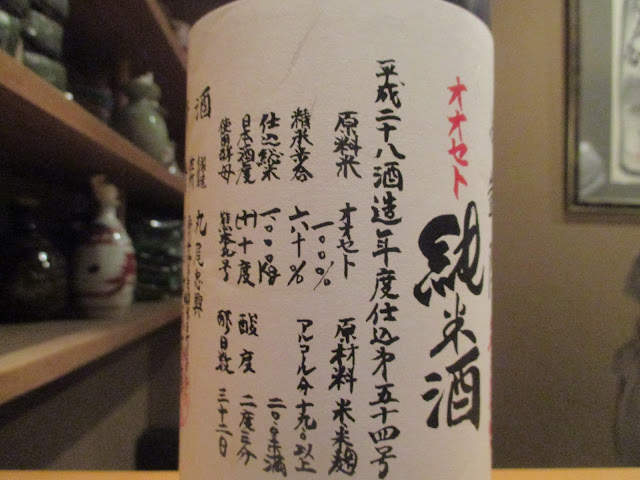 オオセト
純米酒
平成二十八酒造年度仕込第五十四号
原料米 オオセト 一〇〇% 原材料 米、米麹
精米歩合 六十% アルコール分 十九.〇以上 二〇.〇未満
仕込総米 一〇〇〇Kg
日本酒度 (+)十度 酸度 二度三分
使用酵母 熊本九号 醪日数 三十二日
酒 丸尾忠興